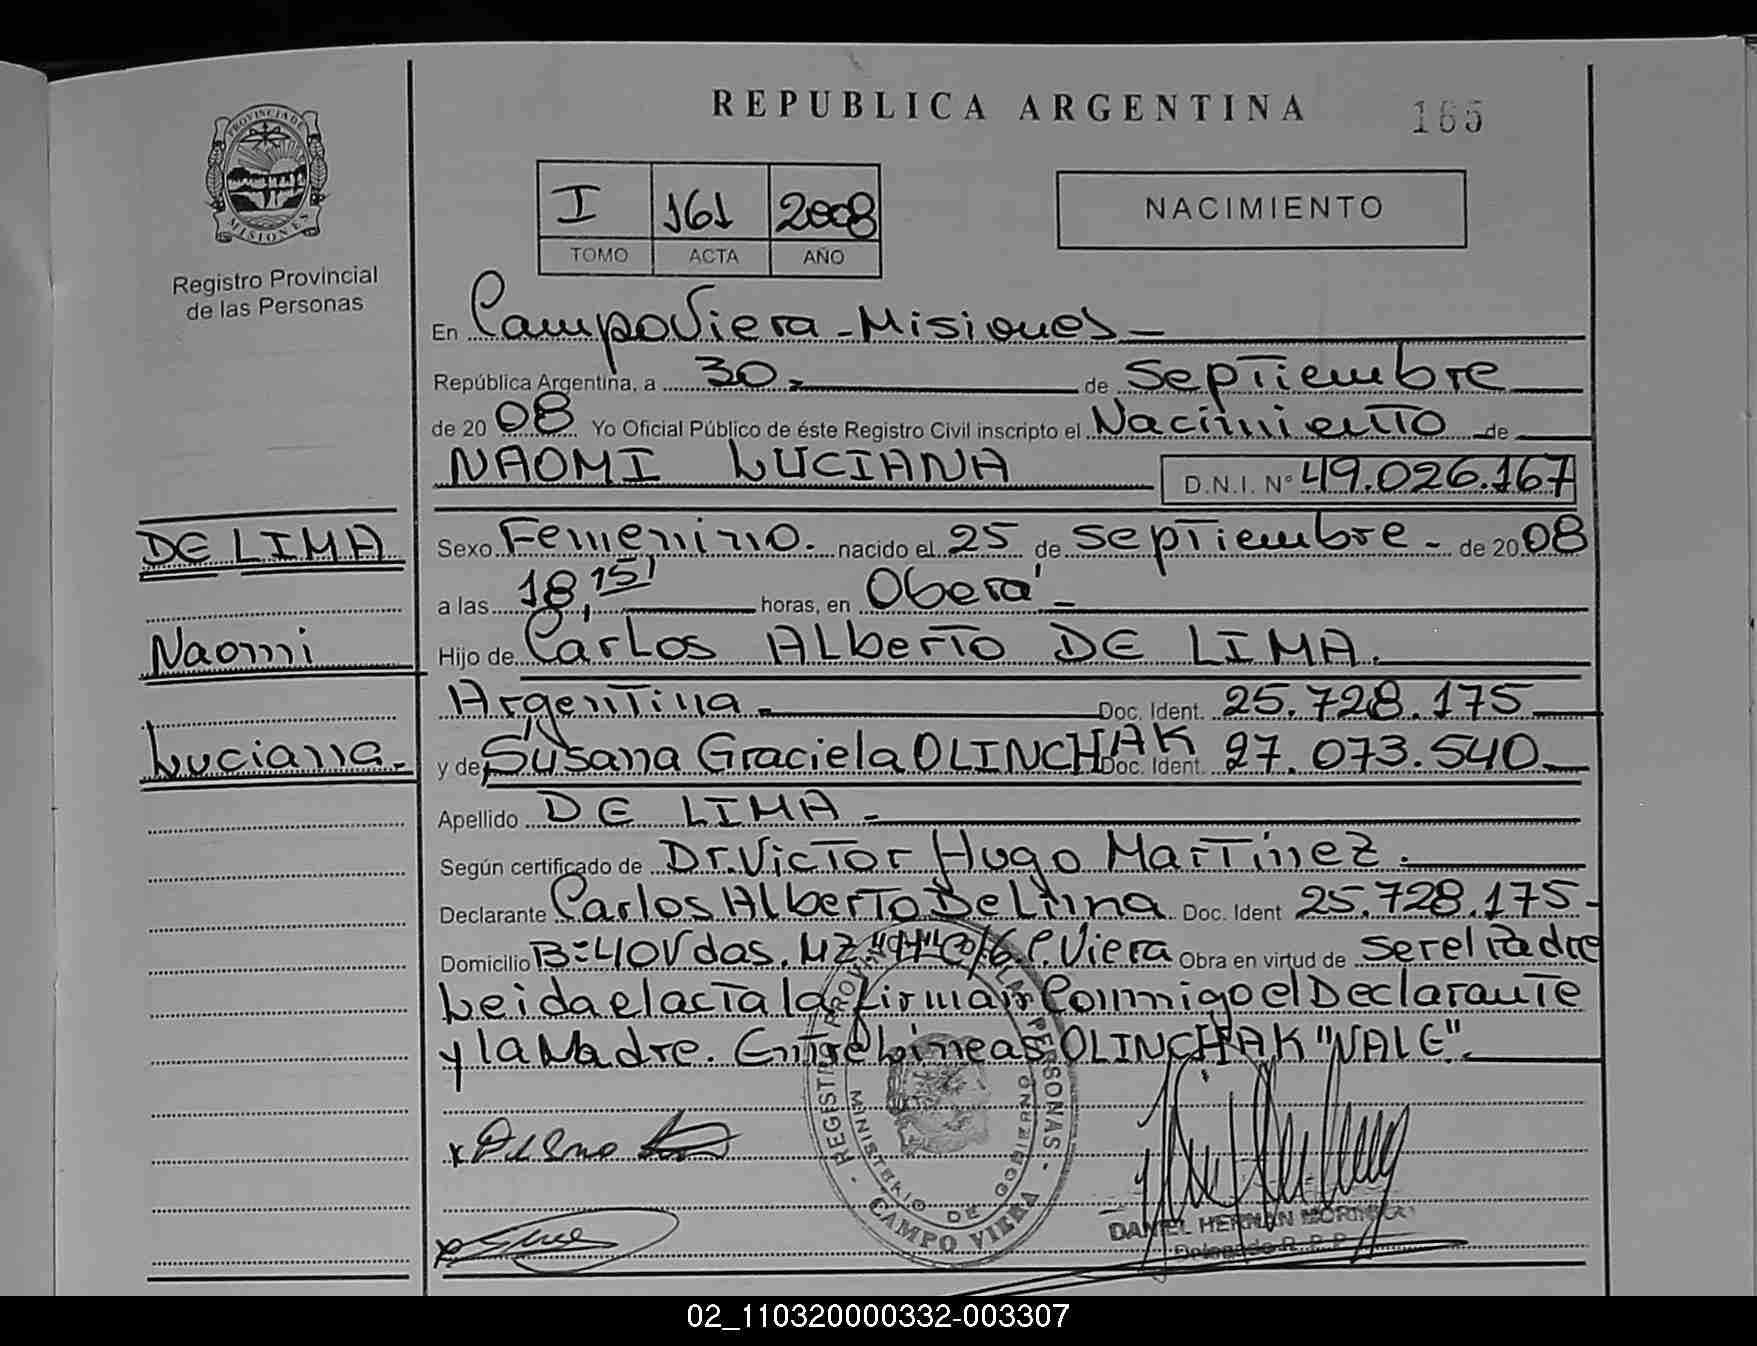 REPUBLICA ARGENTINA
165
PROVINCIA DE
MISIONES
Registro Provincial
de las Personas
I 161 2008
TOMO ACTA AÑO
NACIMIENTO
En Campo Viera - Misiones -
República Argentina, a 30 - de Septiembre
de 20 08 Yo Oficial Público de éste Registro Civil inscripto el Nacimiento de
NAOMI LUCIANA D.N.I. N° 49.026.167
DE LIMA
Sexo Femenino. nacido el 25 de Septiembre - de 20 08
a las 18,15' horas, en Oberá -
Naomi
Hijo de Carlos Alberto DE LIMA.
Argentina - Doc. Ident. 25.728.175
Luciana.
y de Susana Graciela OLINCHAK Doc. Ident. 27.073.540
Apellido DE LIMA -
Según certificado de Dr. Victor Hugo Martínez.
Declarante Carlos Alberto De Lima Doc. Ident 25.728.175-
Domicilio B: 40 Vdas. MZ "H" C/6. C. Viera Obra en virtud de Ser el Padre
Leida el acta la firman Conmigo el Declarante
y la Madre. Entre Líneas OLINCHAK "VALE".
REGISTRO PROVINCIAL DE LAS PERSONAS
MINISTERIO DE GOBIERNO
CAMPO VIERA
DANIEL HERNAN
Delegado R. P. P.
02_110320000332-003307